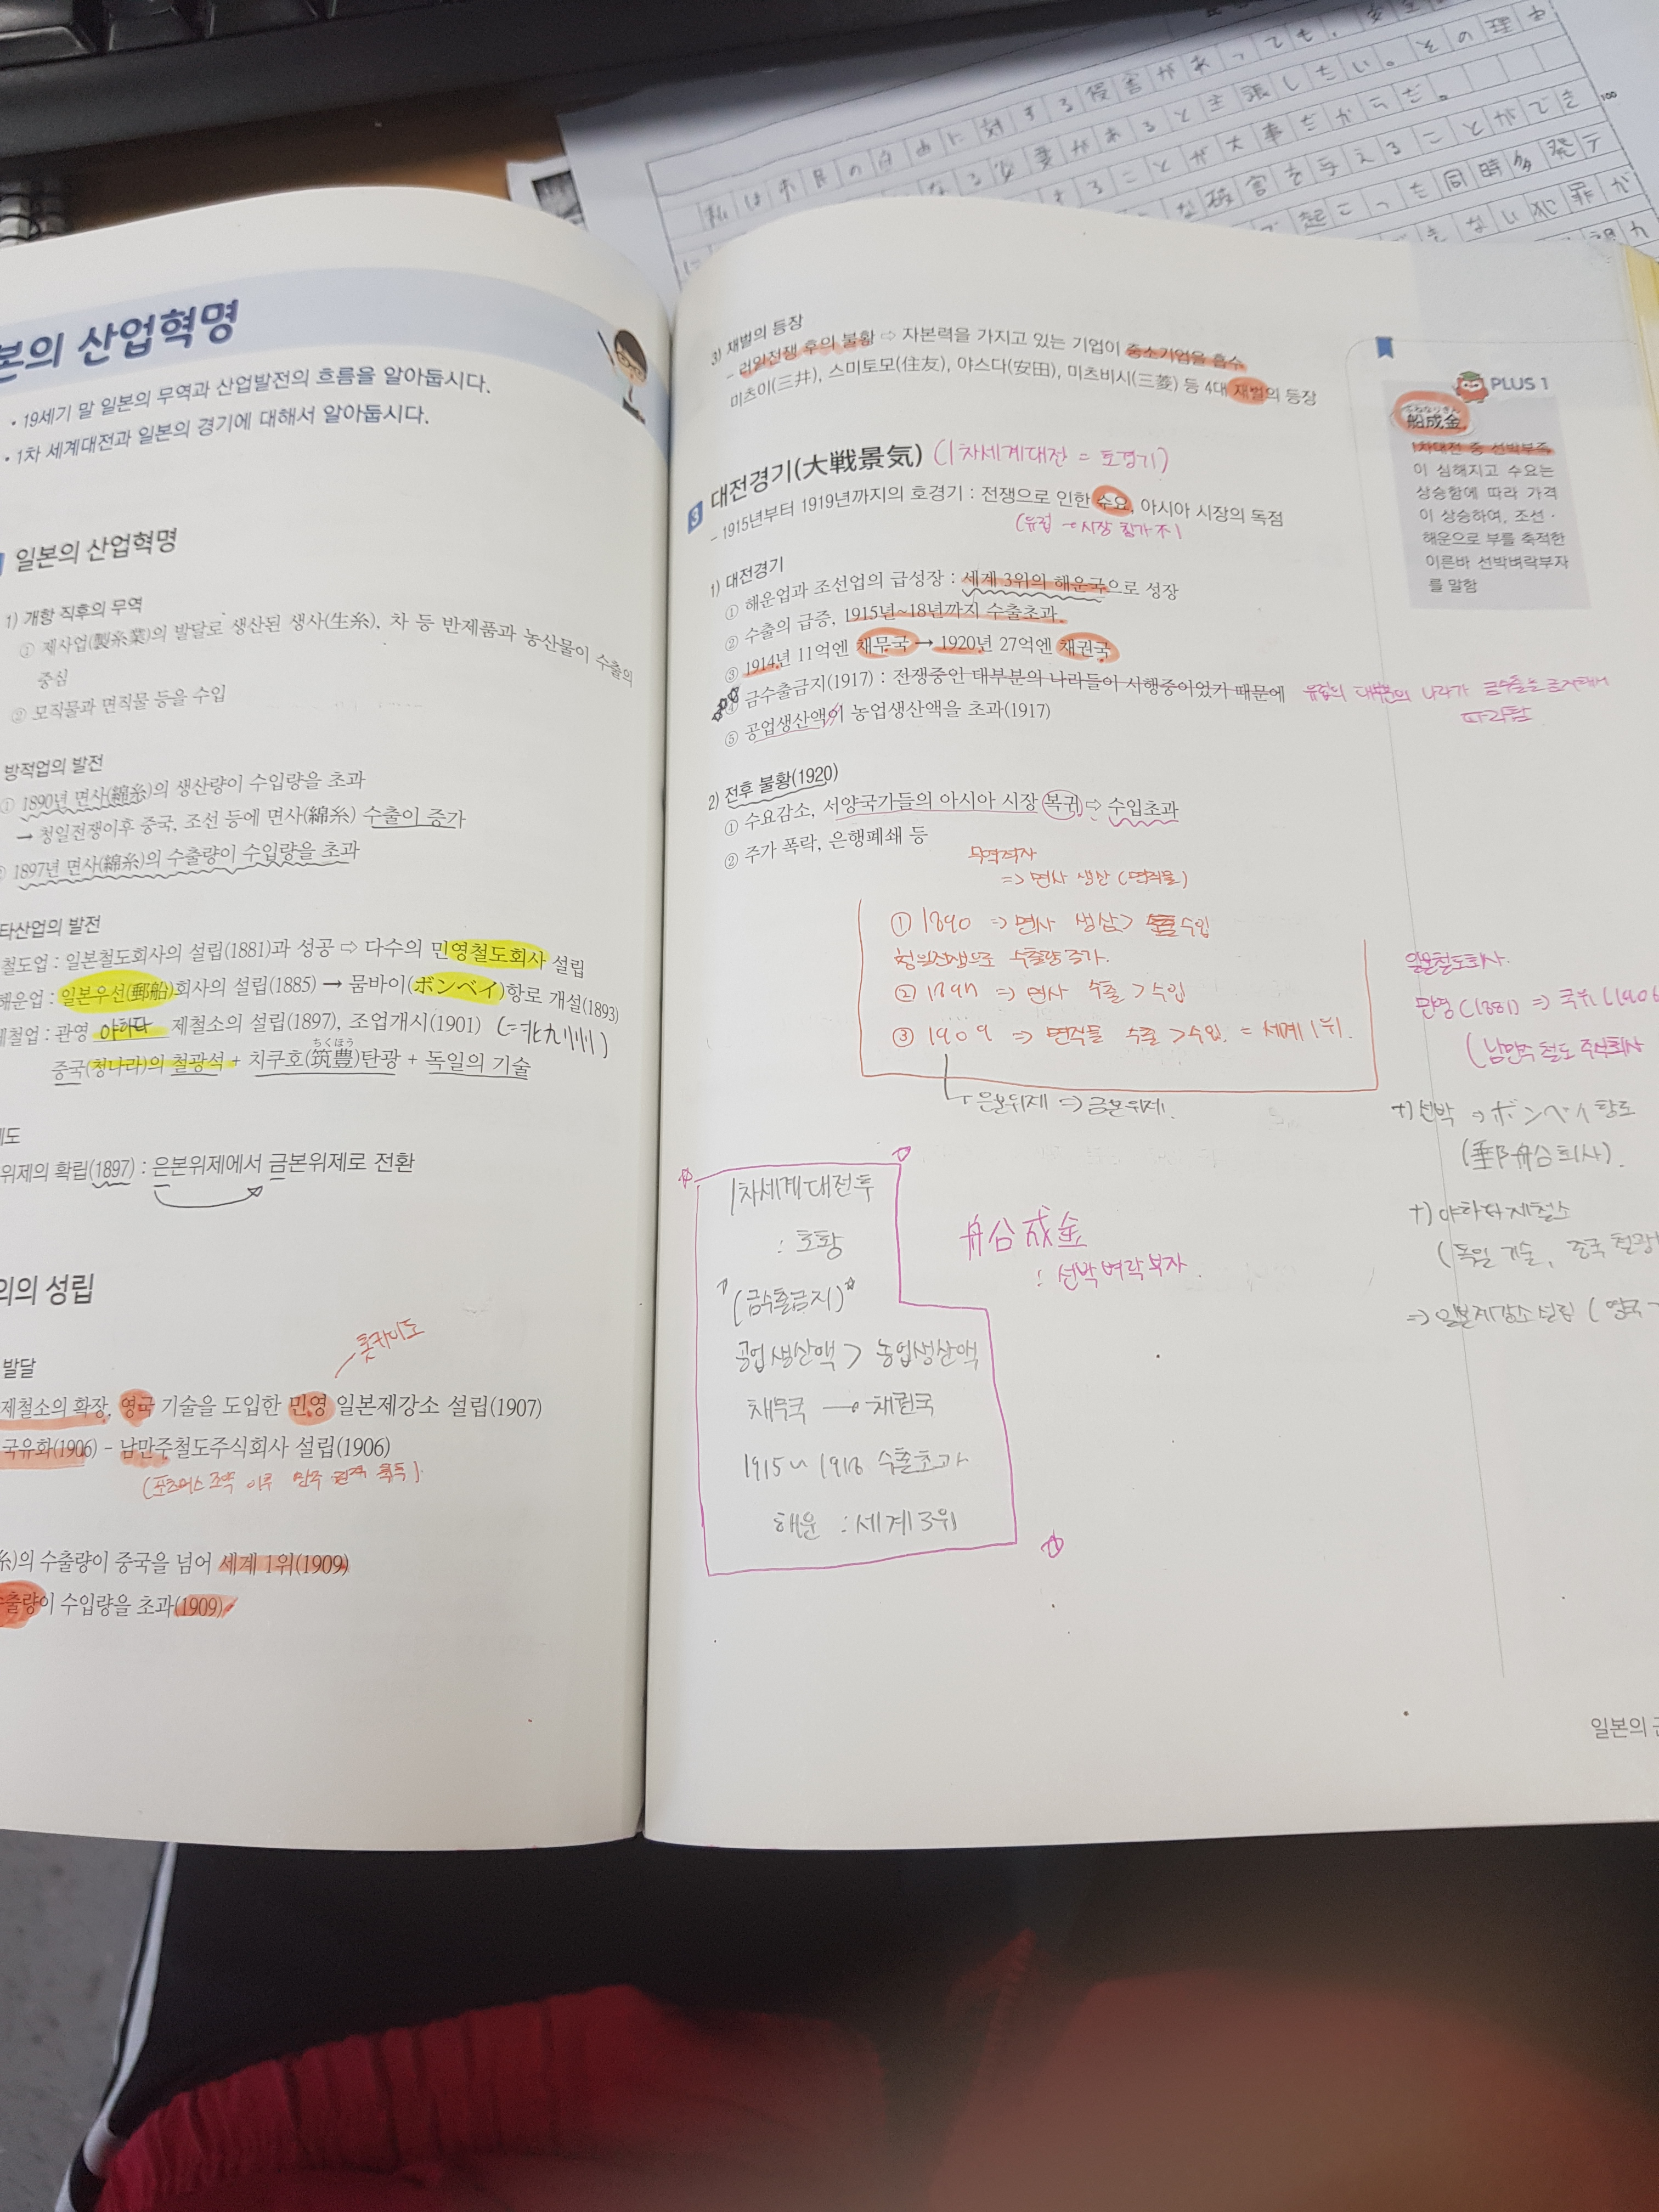 본의 산업혁명
• 19세기 말 일본의 무역과 산업발전의 흐름을 알아둡시다.
• 1차 세계대전과 일본의 경기에 대해서 알아둡시다.
일본의 산업혁명
1) 개항 직후의 무역
① 제사업(製糸業)의 발달로 생산된 생사(生糸), 차 등 반제품과 농산물이 수출의
중심
② 모직물과 면직물 등을 수입
방적업의 발전
① 1890년 면사(綿糸)의 생산량이 수입량을 초과
→ 청일전쟁이후 중국, 조선 등에 면사(綿糸) 수출이 증가
1897년 면사(綿糸)의 수출량이 수입량을 초과
타산업의 발전
철도업 : 일본철도회사의 설립(1881)과 성공 ⇨ 다수의 민영철도회사 설립
해운업 : 일본우선(郵船)회사의 설립(1885) → 뭄바이(ボンベイ)항로 개설(1893)
제철업 : 관영 야하타 제철소의 설립(1897), 조업개시(1901) (=北九州)
ちくほう
중국(청나라)의 철광석 + 치쿠호(筑豊)탄광 + 독일의 기술
제도
위제의 확립(1897) : 은본위제에서 금본위제로 전환
의의 성립
홋카이도
발달
제철소의 확장, 영국 기술을 도입한 민영 일본제강소 설립(1907)
국유화(1906) - 남만주철도주식회사 설립(1906)
(포츠머스 조약 이후 만주 획득)
糸)의 수출량이 중국을 넘어 세계 1위(1909)
수출량이 수입량을 초과(1909)
3) 재벌의 등장
- 러일전쟁 후의 불황 ⇨ 자본력을 가지고 있는 기업이 중소기업을 흡수
미츠이(三井), 스미토모(住友), 야스다(安田), 미츠비시(三菱) 등 4대 재벌의 등장
3 대전경기(大戦景気) (1차세계대전 = 호경기)
- 1915년부터 1919년까지의 호경기 : 전쟁으로 인한 수요, 아시아 시장의 독점
(유럽 → 시장 참가 不)
1) 대전경기
① 해운업과 조선업의 급성장 : 세계 3위의 해운국으로 성장
② 수출의 급증, 1915년~18년까지 수출초과
③ 1914년 11억엔 채무국 → 1920년 27억엔 채권국
④ 금수출금지(1917) : 전쟁중인 대부분의 나라들이 시행중이었기 때문에 유럽의 대부분의 나라가 금수출을 금지해서
따라함
⑤ 공업생산액이 농업생산액을 초과(1917)
2) 전후 불황(1920)
① 수요감소, 서양국가들의 아시아 시장 복귀 ⇨ 수입초과
② 주가 폭락, 은행폐쇄 등
무역적자
=> 면사 생산 (면직물)
① 1890 => 면사 생산 > 수입
청일전쟁으로 수출량 증가.
② 1897 => 면사 수출 > 수입
③ 1909 => 면직물 수출 > 수입 = 세계 1위.
은본위제 => 금본위제.
1차세계대전 후
: 호황
(금수출금지)
공업생산액 > 농업생산액
채무국 → 채권국
1915~1918 수출초과
해운 : 세계 3위
船成金
: 선박벼락부자.
PLUS 1
ふねなりきん
船成金
1차대전 중 선박부족
이 심해지고 수요는
상승함에 따라 가격
이 상승하여, 조선·
해운으로 부를 축적한
이른바 선박벼락부자
를 말함
일본철도회사.
민영(1881) => 국유(1906
(남만주 철도 주식회사
+) 선박 => ボンベイ항로
(郵船会사).
+) 야하타제철소
(독일 기술, 중국 철광
=> 일본제강소 설립 (영국
일본의